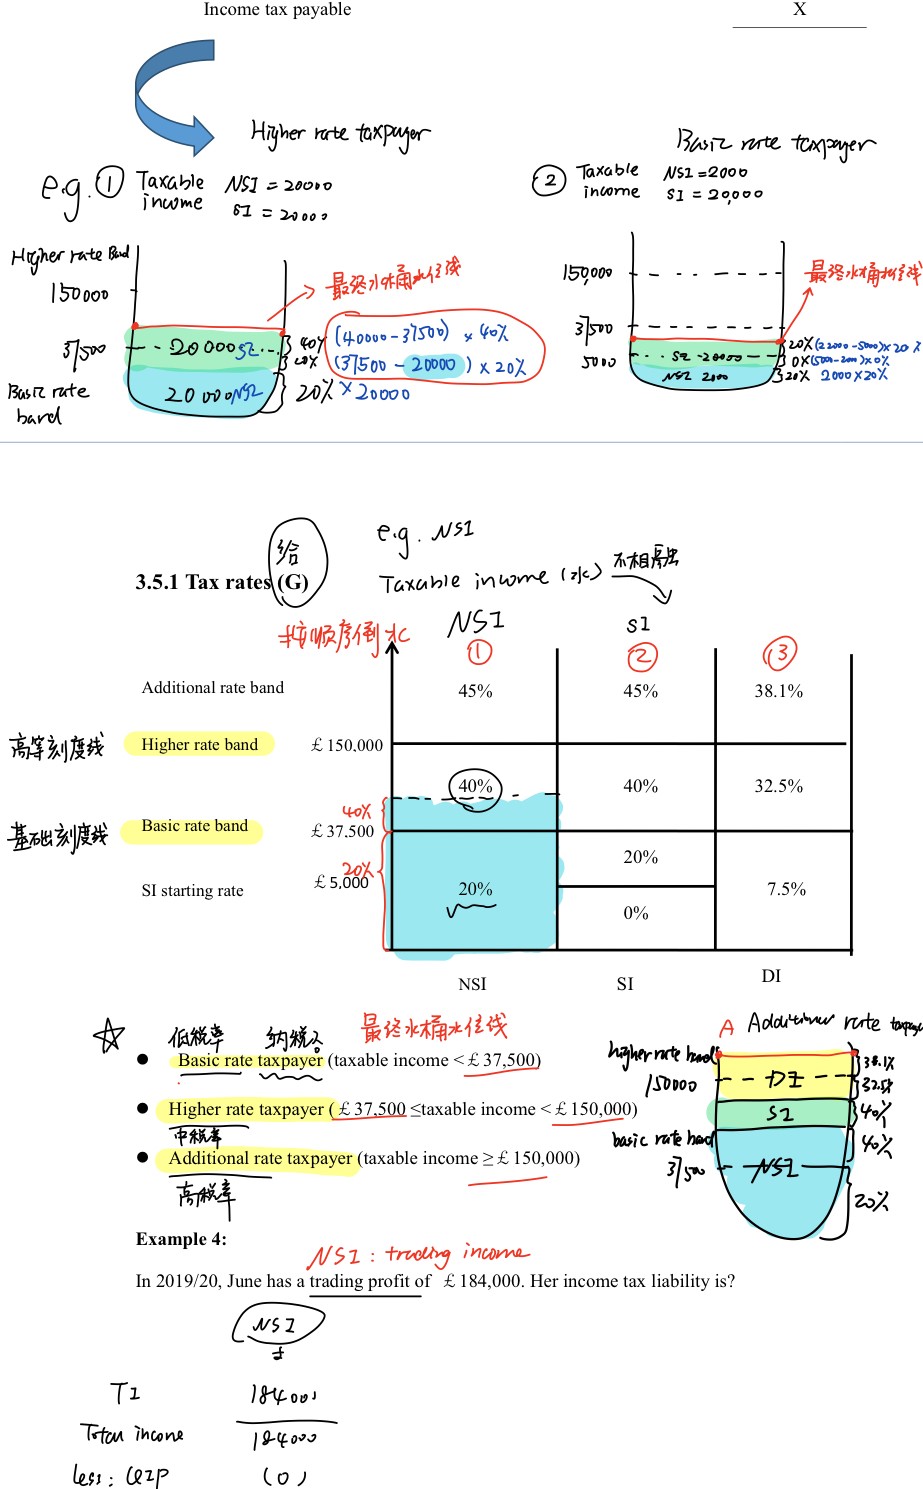 Income tax payable X
Higher rate taxpayer
Basic rate taxpayer
e.g. ① Taxable income NSI = 20000
SI = 20000
② Taxable income NSI = 2000
SI = 20,000
Higher rate Band
150000
37500
Basic rate band
20000 SI
20000 NSI
最终水桶水位线
40%
20%
(40000-37500) × 40%
(37500 - 20000) × 20%
20% × 20000
150,000
37500
5000
SI 20000
NSI 2000
最终水桶水位线
20% (22000-5000)×20%
0%
20% 2000×20%
给
e.g. NSI
3.5.1 Tax rates (G)
Taxable income (水)
按顺序倒水
NSI SI
① ② ③
Additional rate band 45% 45% 38.1%
高等刻度线 Higher rate band £150,000
40% 40% 32.5%
40%
基础刻度线 Basic rate band £37,500
20%
20%
SI starting rate £5,000 20% 7.5%
0%
NSI SI DI
低税率 纳税人
最终水桶水位线
● Basic rate taxpayer (taxable income < £37,500)
● Higher rate taxpayer (£37,500 ≤taxable income < £150,000)
中税率
● Additional rate taxpayer (taxable income ≥ £150,000)
高税率
A Additional rate taxpayer
higher rate band
150000
basic rate band
37500
DI
SI
NSI
38.1%
32.5%
40%
40%
20%
Example 4:
NSI: trading income
In 2019/20, June has a trading profit of £184,000. Her income tax liability is?
NSI
£
TI 184000
Total income 184000
less: QIP (0)